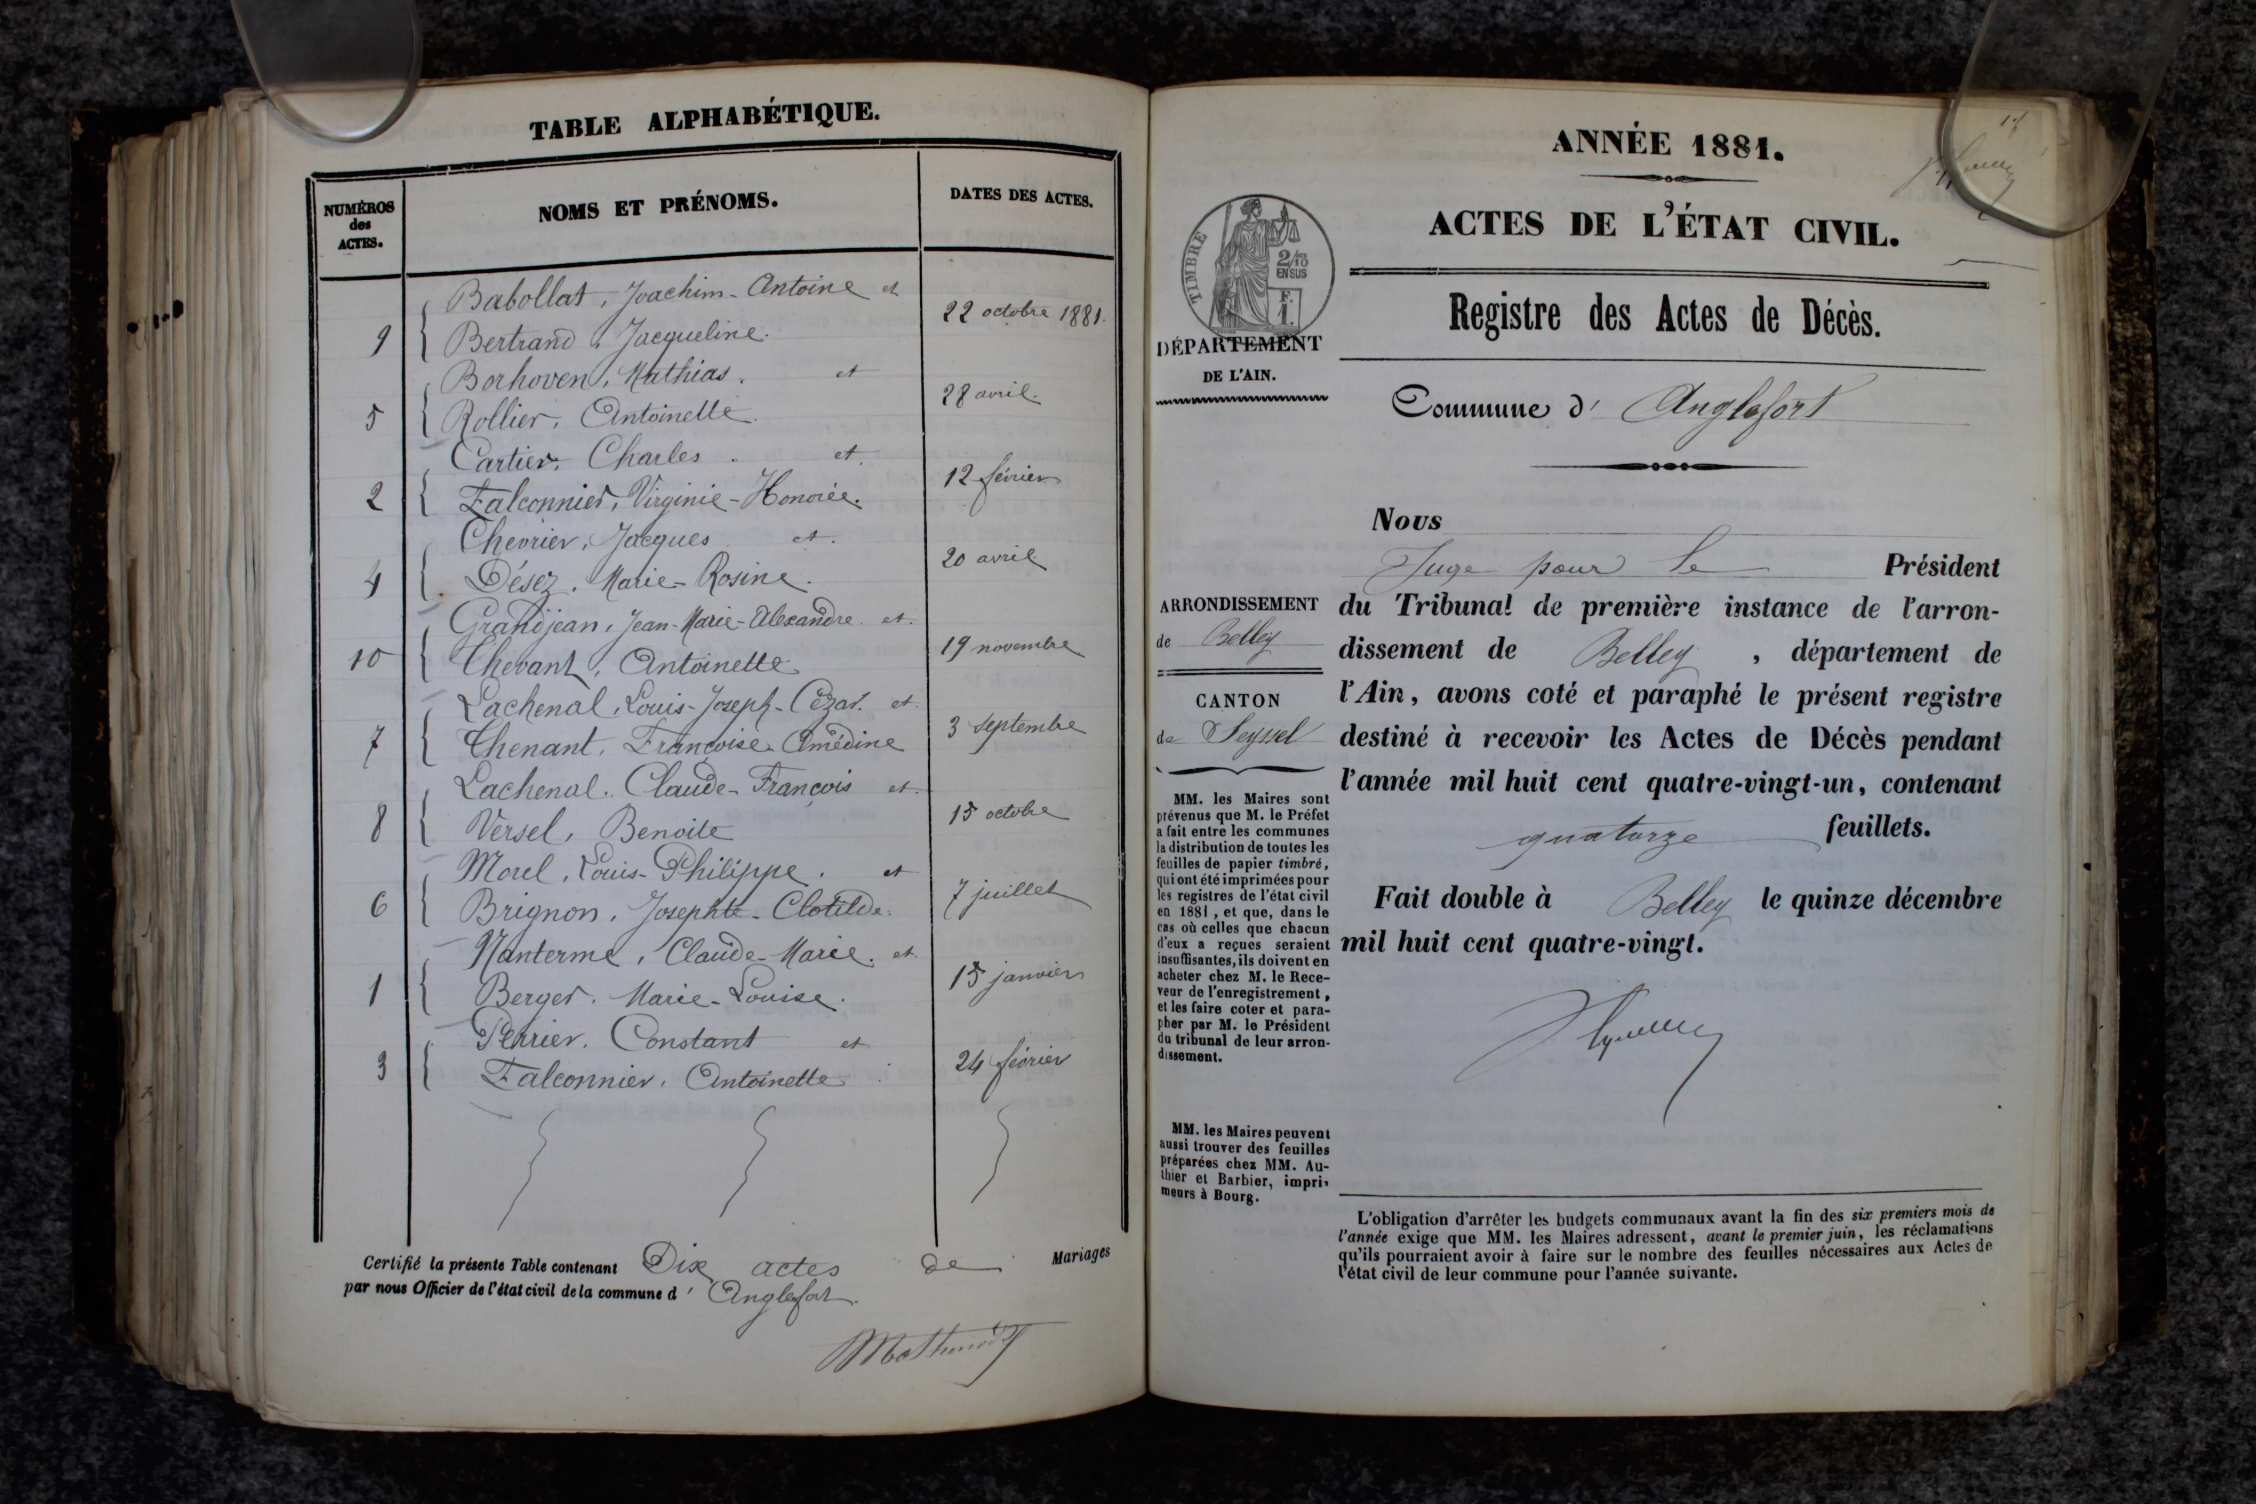 TABLE ALPHABÉTIQUE.
NUMÉROS
des
ACTES.
NOMS ET PRÉNOMS.
DATES DES ACTES.
Babollat, Joachim-Antoine et
9 { Bertrand, Jacqueline.
22 octobre 1881.
Borhoven, Mathias. et
5 { Rollier, Antoinette.
28 avril.
Cartier, Charles. et
2 { Falconnier, Virginie-Honorée.
12 février
Chevrier, Jacques et
4 { Désez, Marie-Rosine.
20 avril
Grandjean, Jean-Marie-Alexandre. et
10 { Thevant, Antoinette
19 novembre
Lachenal, Louis-Joseph-Cézar. et
7 { Thenant, Françoise Amédine
3 septembre
Lachenal, Claude-François et
8 { Versel, Benoite
15 octobre
Morel, Louis-Philippe. et
6 { Brignon, Josephte-Clotilde.
7 juillet
Nanterme, Claude-Marie. et
1 { Berger, Marie-Louise.
15 janvier
Perrier, Constant et
3 { Falconnier, Antoinette
24 février
Certifié la présente Table contenant Dix actes de Mariages
par nous Officier de l'état civil de la commune d' Anglefort.
ANNÉE 1881.
ACTES DE L'ÉTAT CIVIL.
TIMBRE
2/10
EN SUS
F.
1.
Registre des Actes de Décès.
DÉPARTEMENT
DE L'AIN.
Commune d' Anglefort
Nous
Juge pour le Président
du Tribunal de première instance de l'arron-
dissement de Belley, département de
l'Ain, avons coté et paraphé le présent registre
destiné à recevoir les Actes de Décès pendant
l'année mil huit cent quatre-vingt-un, contenant
quatorze feuillets.
Fait double à Belley le quinze décembre
mil huit cent quatre-vingt.
ARRONDISSEMENT
de Belley
CANTON
de Seyssel
MM. les Maires sont
prévenus que M. le Préfet
a fait entre les communes
la distribution de toutes les
feuilles de papier timbré,
qui ont été imprimées pour
les registres de l'état civil
en 1881, et que, dans le
cas où celles que chacun
d'eux a reçues seraient
insuffisantes, ils doivent en
acheter chez M. le Rece-
veur de l'enregistrement,
et les faire coter et para-
pher par M. le Président
du tribunal de leur arron-
dissement.
MM. les Maires peuvent
aussi trouver des feuilles
préparées chez MM. Au-
thier et Barbier, impri-
meurs à Bourg.
L'obligation d'arrêter les budgets communaux avant la fin des six premiers mois de
l'année exige que MM. les Maires adressent, avant le premier juin, les réclamations
qu'ils pourraient avoir à faire sur le nombre des feuilles nécessaires aux Actes de
l'état civil de leur commune pour l'année suivante.